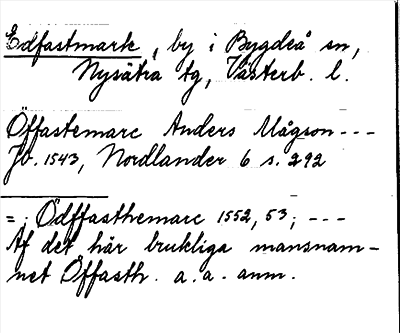 Edfastmark, by i Bygdeå sn,
Nysätra tg, Västerb. l.
Öffastemarc Anders Mågson ---
Jb. 1543, Nordlander 6 s. 292
= Ödffasthemarc 1552, 53; ---
Af det här brukliga mansnam-
net Öffasth. a. a. anm.